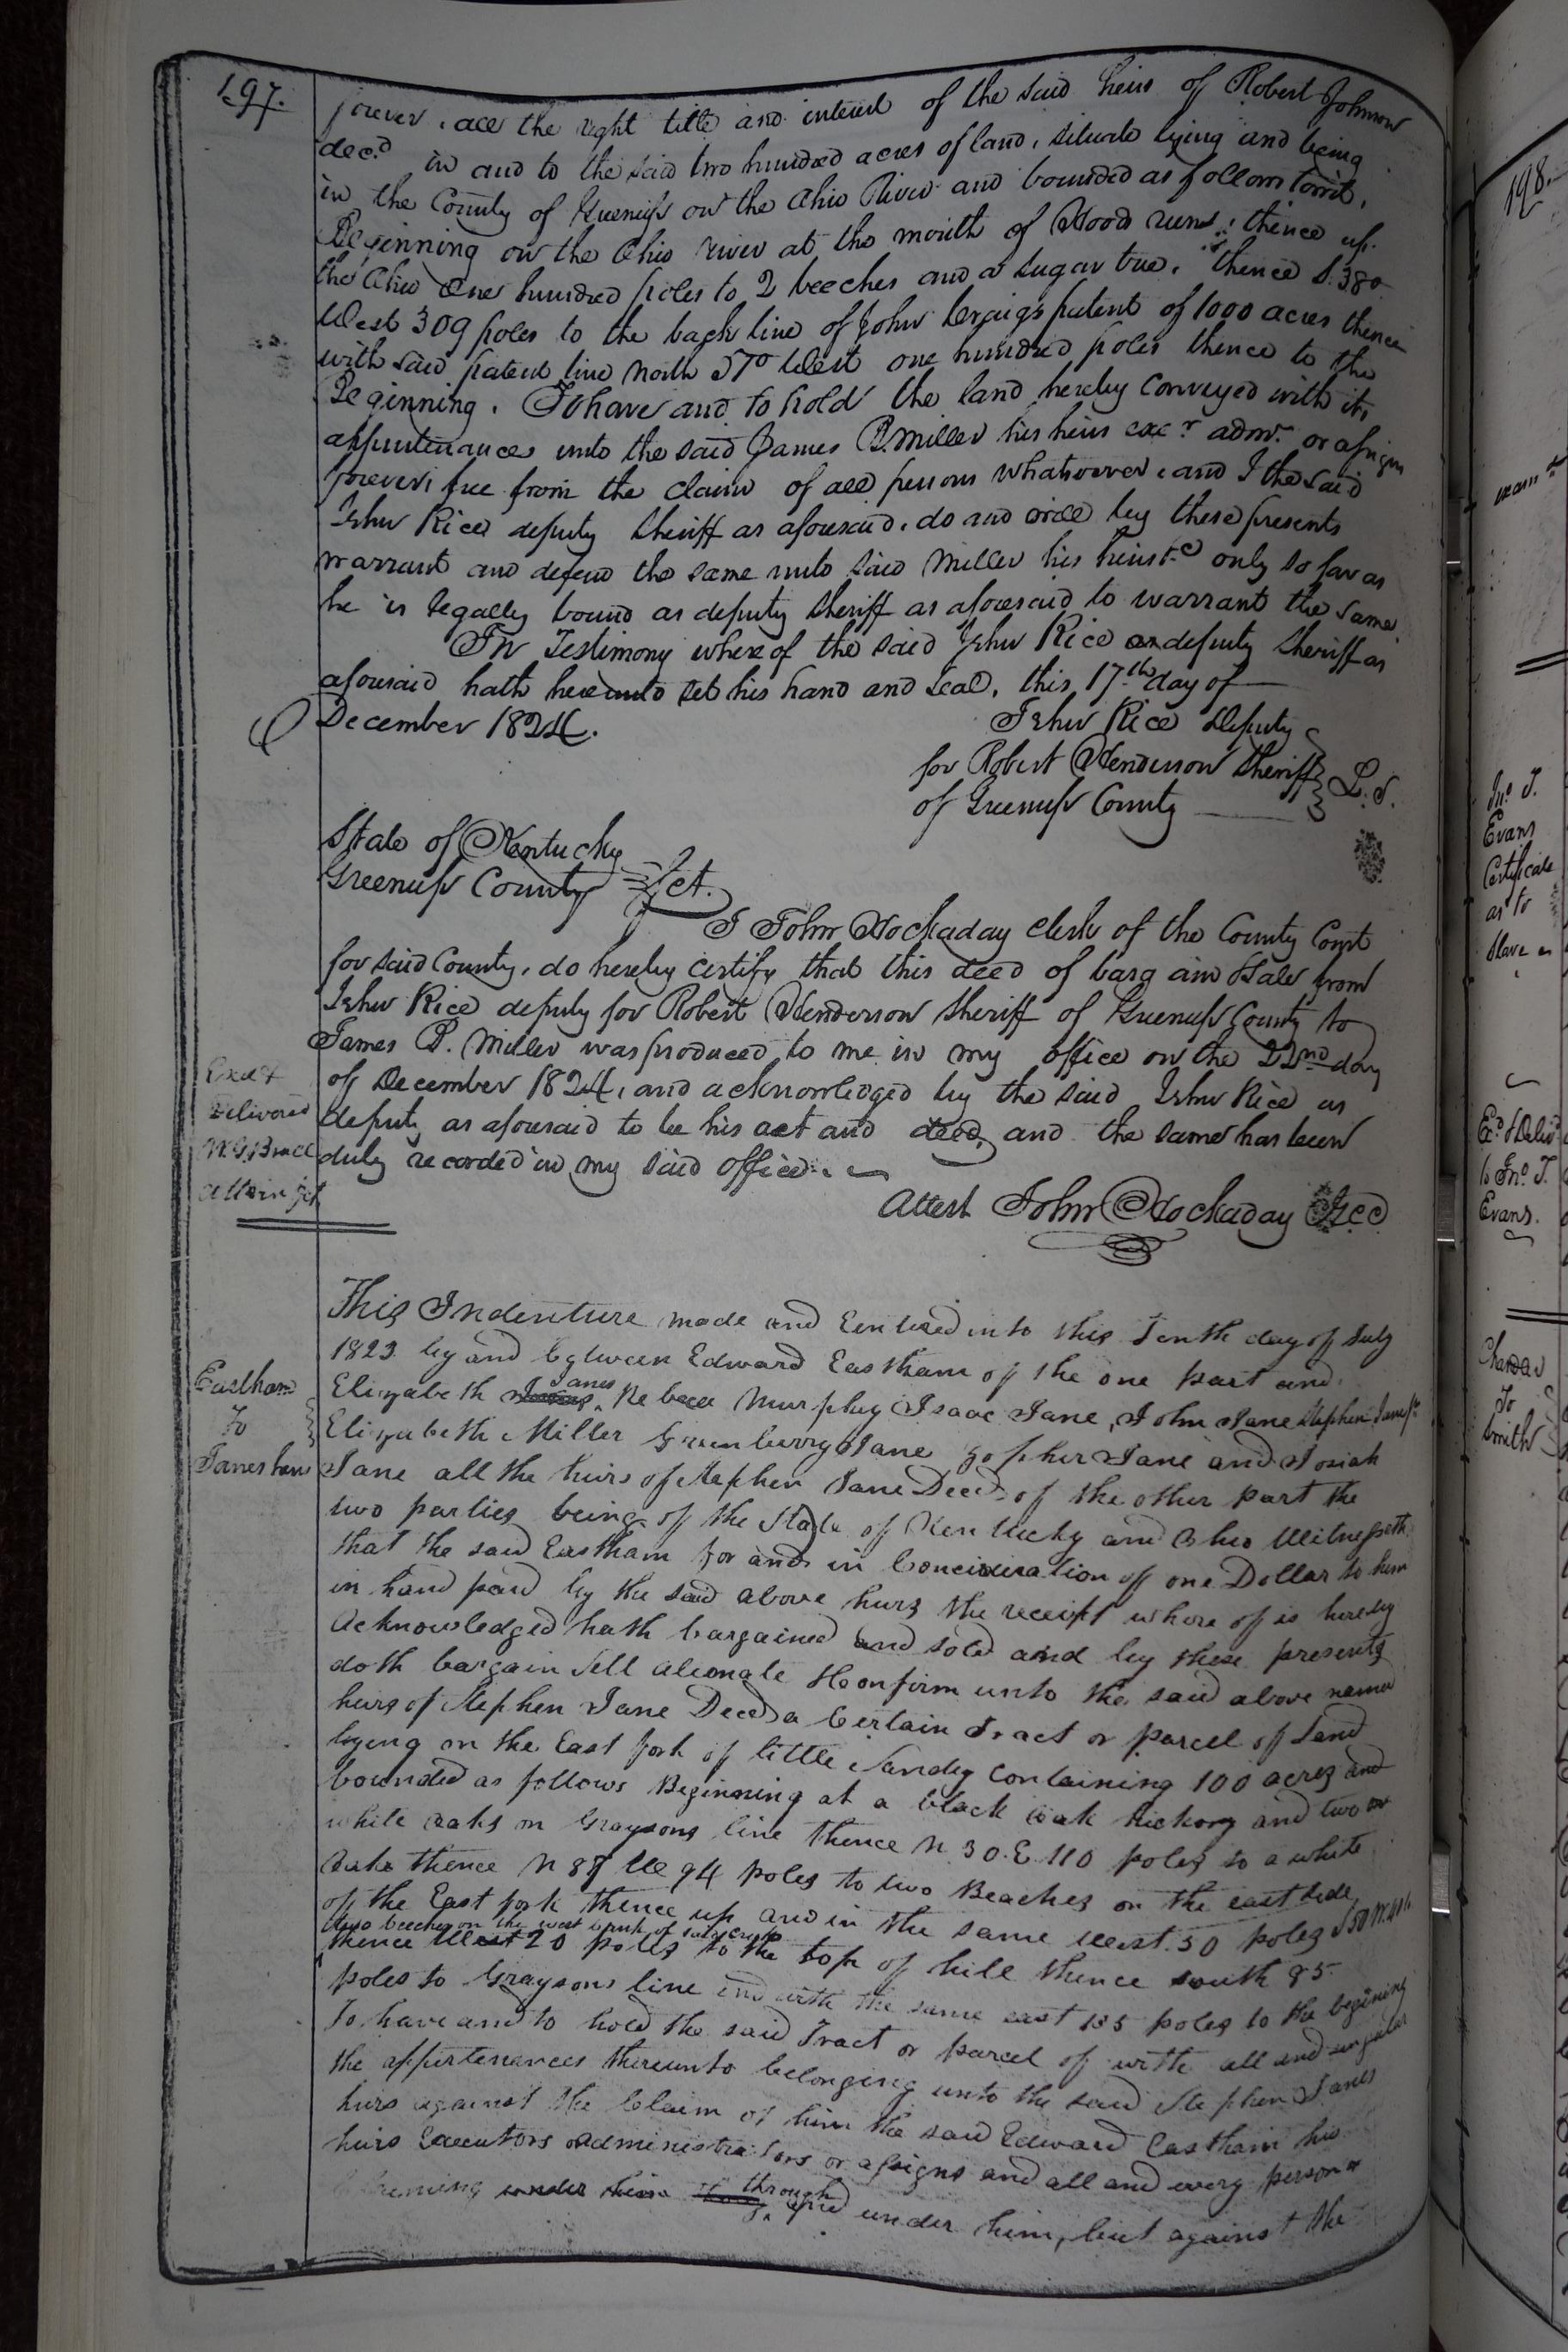 197.
forever, all the right title and interest of the said heirs of Robert Johnson
decd in and to the said two hundred acres of land, situate lying and being
in the County of Greenup on the Ohio River and bounded as follows towit,
Beginning on the Ohio river at the mouth of Wood runs, thence up
the Ohio One hundred poles to 2 beeches and a sugar tree, thence S. 38o
West 309 poles to the back line of John Craigs patent of 1000 acres thence
with said patent line North 57o West one hundred poles thence to the
Beginning. To have and to hold the land hereby conveyed with its
appurtenances unto the said James P. Miller his heirs excr admr or assigns
forever, free from the claim of all persons whatsoever, and I the said
John Rice deputy Sheriff as aforesaid, do and will by these presents
warrant and defend the same unto said Miller his heirs &c only so far as
he is legally bound as deputy Sheriff as aforesaid to warrant the same
In Testimony whereof the said John Rice as deputy Sheriff as
aforesaid hath hereunto set his hand and seal, this 17th day of
December 1824.
John Rice Deputy
for Robert Henderson Sheriff
of Greenup County
L.S.
State of Kentucky
Greenup County Sct.
I John Hockaday Clerk of the County Court
for said County, do hereby certify that this deed of bargain & Sale from
John Rice deputy for Robert Henderson Sheriff of Greenup County to
James P. Miller was produced to me in my office on the 22nd day
of December 1824, and acknowledged by the said John Rice as
deputy as aforesaid to be his act and deed, and the same has been
duly recorded in my said office.
Exd &
Delivered
Attest John Hockaday GCC
This Indenture made and Entered into this Tenth day of July
1823 by and between Edward Eastham of the one part and
Elizabeth Janes Rebecca Murphey Isaac Jane, John Jane Stephen Jane
Elizabeth Miller Greenberry Jane Zopher Jane and Josiah
Jane all the heirs of Stephen Jane Decd. of the other part the
two parties being of the State of Kentucky and Ohio Witnesseth
that the said Eastham for and in Concideration of one Dollar to him
in hand paid by the said above heirs the receipt where of is hereby
Acknowledged hath bargained and sold and by these presents
doth bargain Sell alienate & Confirm unto the said above named
heirs of Stephen Jane Decd a Certain Tract or parcel of Land
lying on the East fork of little Sandy Containing 100 acres and
bounded as follows Beginning at a black oak Hickory and two
white oaks on Graysons line thence N 30. E 110 poles to a white
oake thence N 88 W 94 poles to two Beaches on the east side
of the East fork thence up and in the same west 50 poles
two beeches on the west bank of said creek
thence West 20 poles to the top of hill thence south 85
poles to Graysons line and with the same east 185 poles to the begining
To have and to hold the said Tract or parcel of with all and singular
the appertenances thereunto belonging unto the said Stephen Janes
heirs against the Claim of him the said Edward Eastham his
heirs Executors administrators or assigns and all and every person or
under him through and under him, but against the
Eastham
To
Janes heirs
198.
Jno. T.
Evans
Certificate
as to
Slave
Ed. & Delivd
to Jno. T.
Evans.
To
Smith